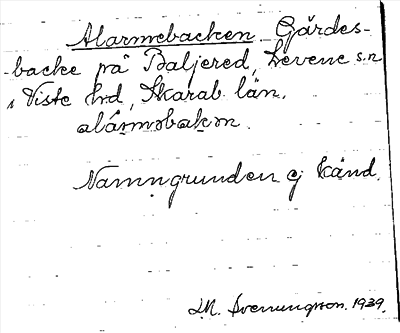 Alarmebacken Gärdes-
backe på Baljered, Levene s:n
i Viste hrd, Skarab. län.
alárməbakən.
Namngrunden ej känd.
M. Svenungsson. 1939.